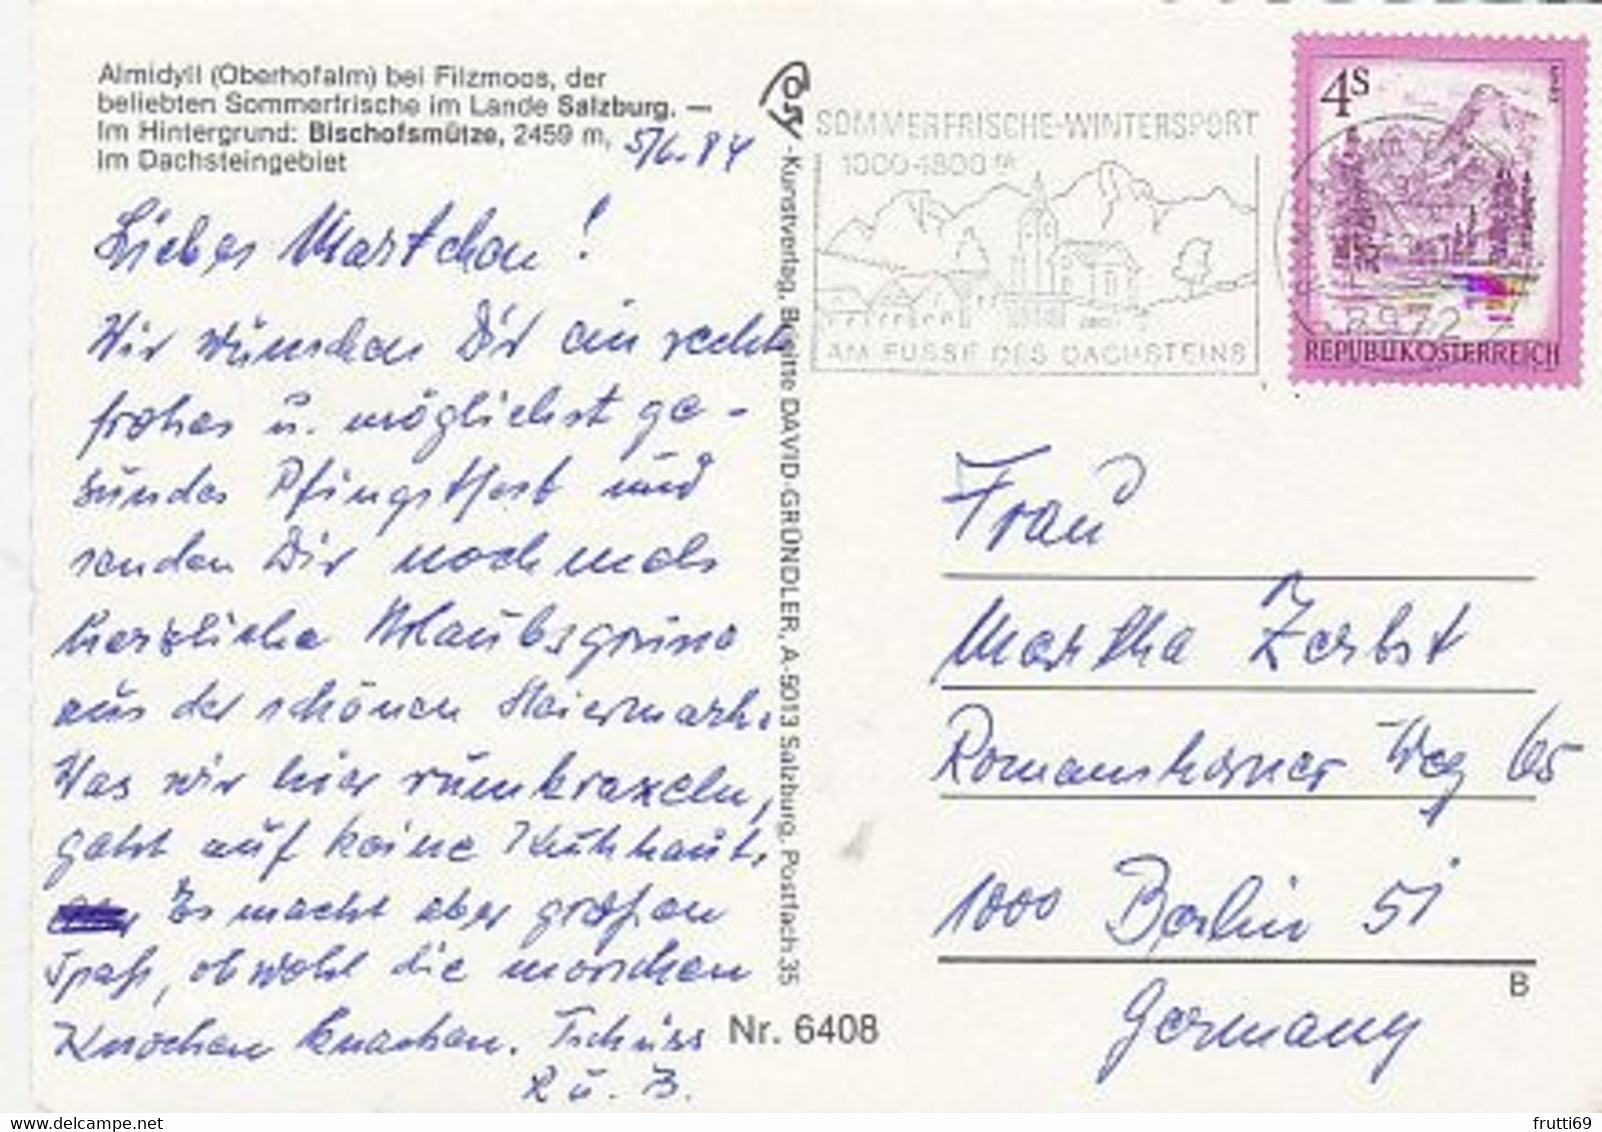 Almidyll (Oberhofalm) bei Filzmoos, der
beliebten Sommerfrische im Lande Salzburg. —
Im Hintergrund: Bischofsmütze, 2459 m,
im Dachsteingebiet
5/6. 84
Liebes Martchen!
Wir wünschen Dir ein recht
frohes u. möglichst ge-
sundes Pfingstfest und
senden Dir nochmals
herzliche Urlaubsgrüße
aus der schönen Steiermark.
Was wir hier rumkraxeln,
geht auf keine Kuhhaut.
Es macht aber großen
Spaß, obwohl die morschen
Knochen knacken. Tschüss
R u. B.
Cosy-Kunstverlag, Brigitte DAVID-GRÜNDLER, A-5013 Salzburg, Postfach 35
Nr. 6408
SOMMERFRISCHE-WINTERSPORT
1000-1800 m
AM FUSSE DES DACHSTEINS
8972
4 S
REPUBLIK ÖSTERREICH
Frau
Martha Zerbst
Romanshorner Weg 65
1000 Berlin 51
Germany
B
frutti69